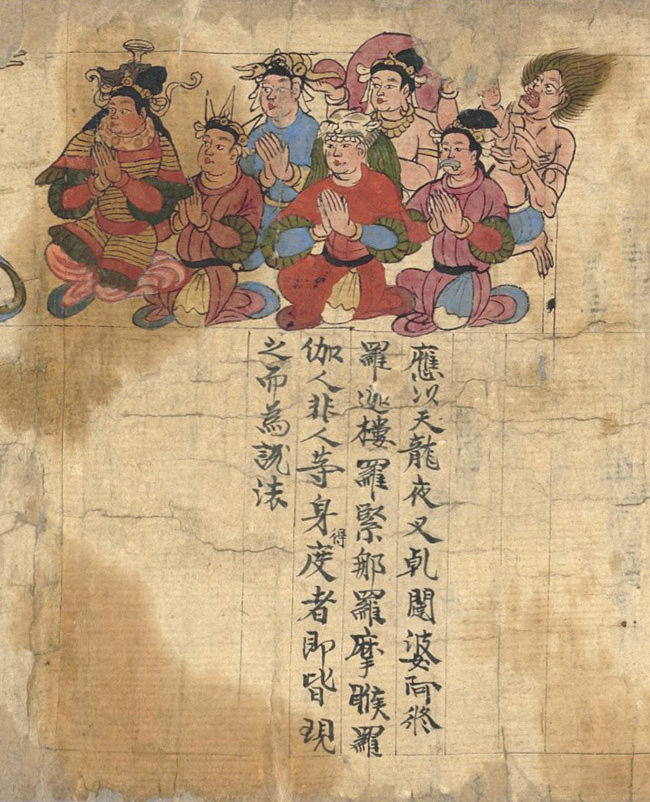 應以天龍夜叉乹闥婆阿修
羅迦樓羅緊那羅摩睺羅
伽人非人等身得度者即皆現
之而為說法